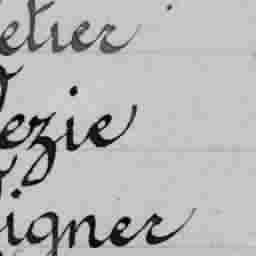 etier
ezie
igner